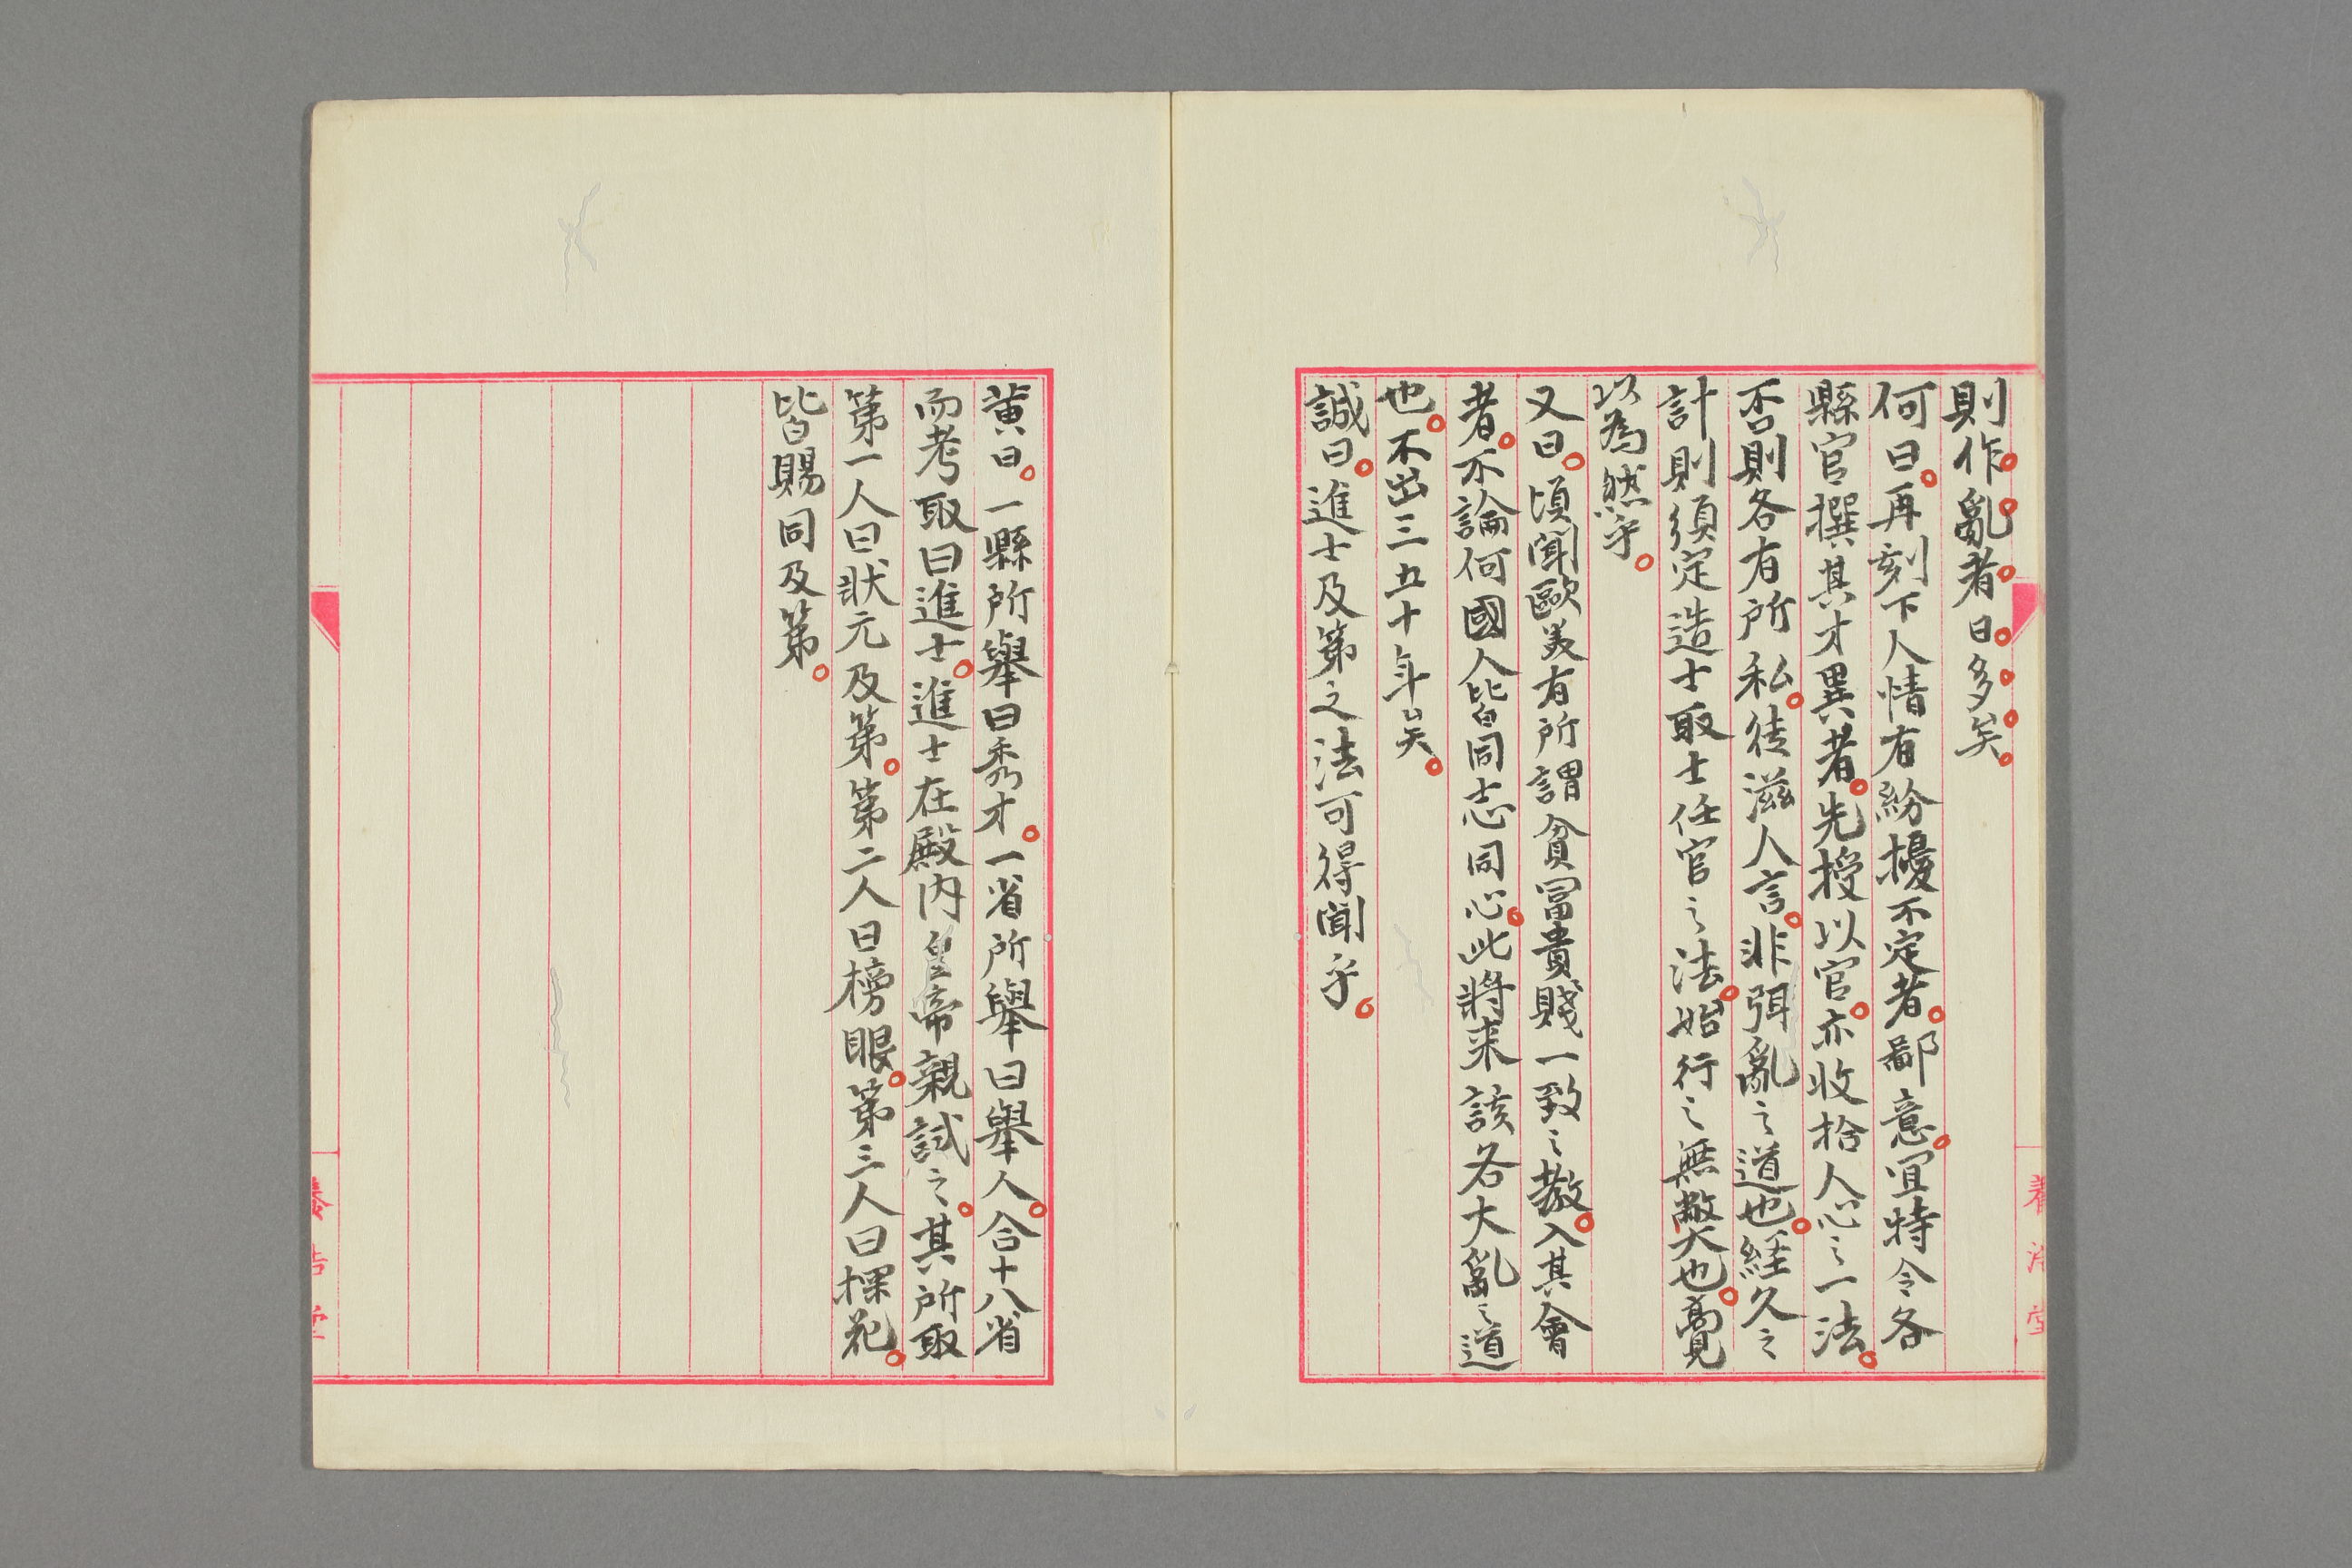 則作亂者曰多矣
何曰再刻下人情有紛擾不定者鄙意宜特令各
縣官撰其才異者先授以官亦收拾人心之一法
否則各有所私徒滋人言非弭亂之道也経久之
計則須定造士取士任官之法始行之無敝大也覺
以為然乎
又曰頃聞歐美有所謂貧冨貴賤一致之教入其會
者不論何國人皆同志同心此將来該各大亂之道
也不出三五十年矣
誠曰進士及第之法可得聞乎
養浩堂
黄曰一縣所舉曰秀才一省所舉曰舉人合十八省
而考取曰進士進士在殿内皇帝親試之其所取
第一人曰狀元及第第二人曰榜眼第三人曰探花
皆賜同及第